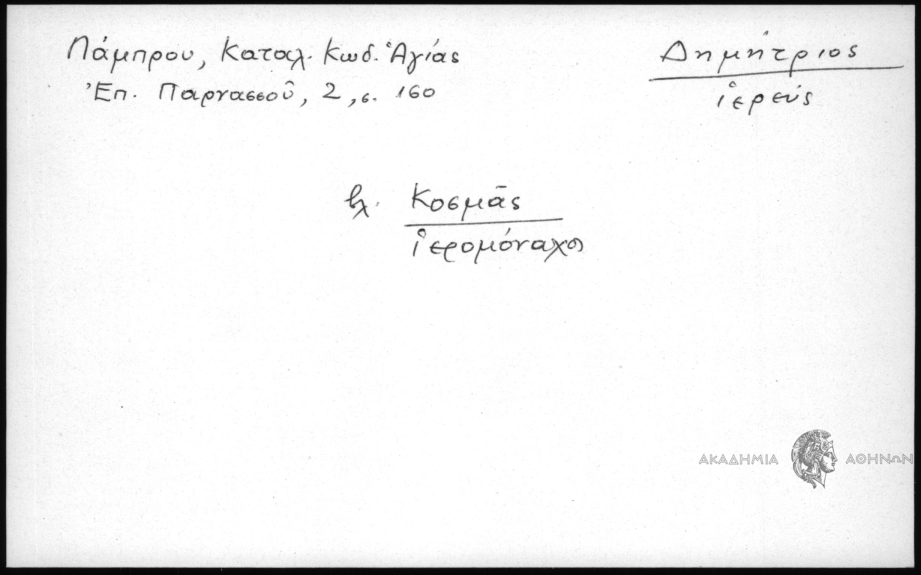 Λάμπρου, Καταλ. Κωδ. Ἁγίας
Ἐπ. Παρνασσοῦ, 2, σ. 160
Δημήτριος
ἱερεύς
βλ. Κοσμᾶς
ἱερομόναχος
ΑΚΑΔΗΜΙΑ ΑΘΗΝΩΝ